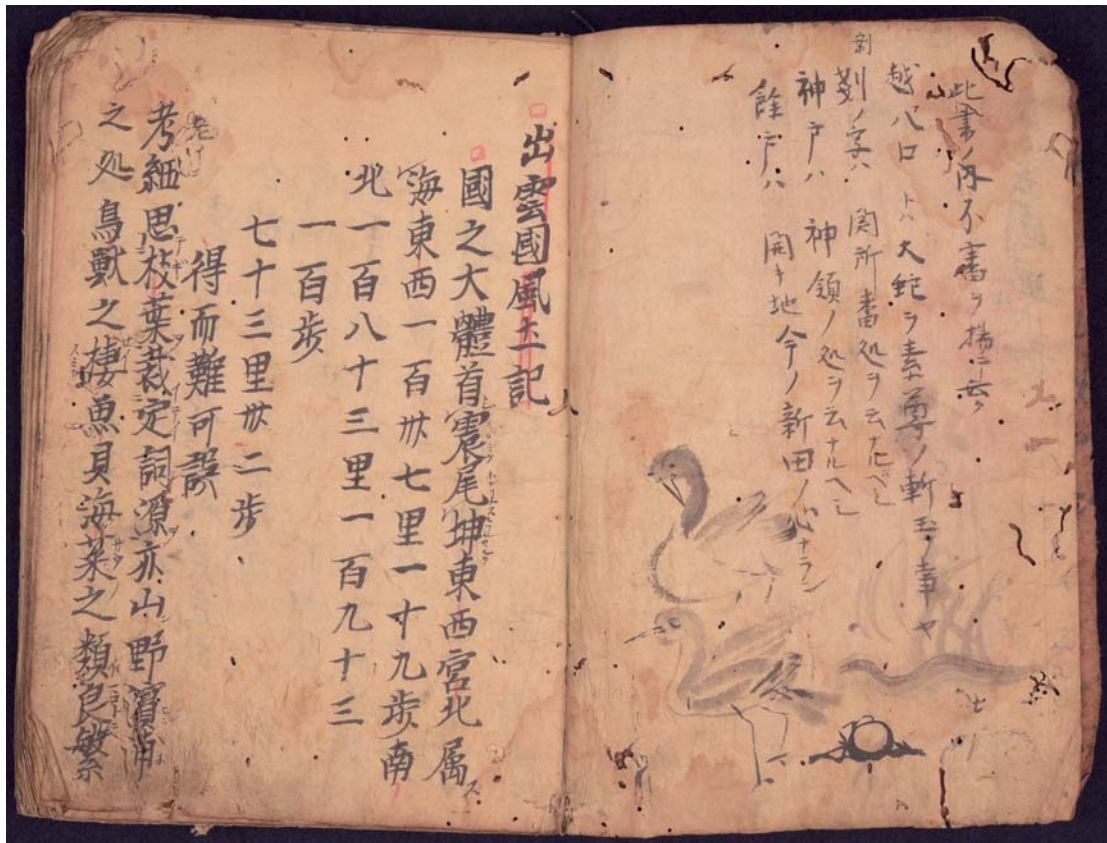 此書ノ内不審ヲ揚ニ云ク
越八口 トハ大蛇ヲ素尊ノ斬玉フ事ヤ
剗
剗ノ字ハ 関所番処ヲ云ナルベシ
神戸ハ 神領ノ処ヲ云ナルヘシ
餘戸ハ 開キ地今ノ新田ノ心ナラン
出雲國風土記
國之大體首震尾坤東西宮北属
海東西一百卅七里一十九歩南
北一百八十三里一百九十三
一百歩
七十三里卅二歩
得而難可誤
老
考細思枝葉裁定詞源亦山野濱浦
之処鳥獸之棲魚貝海菜之類良繁